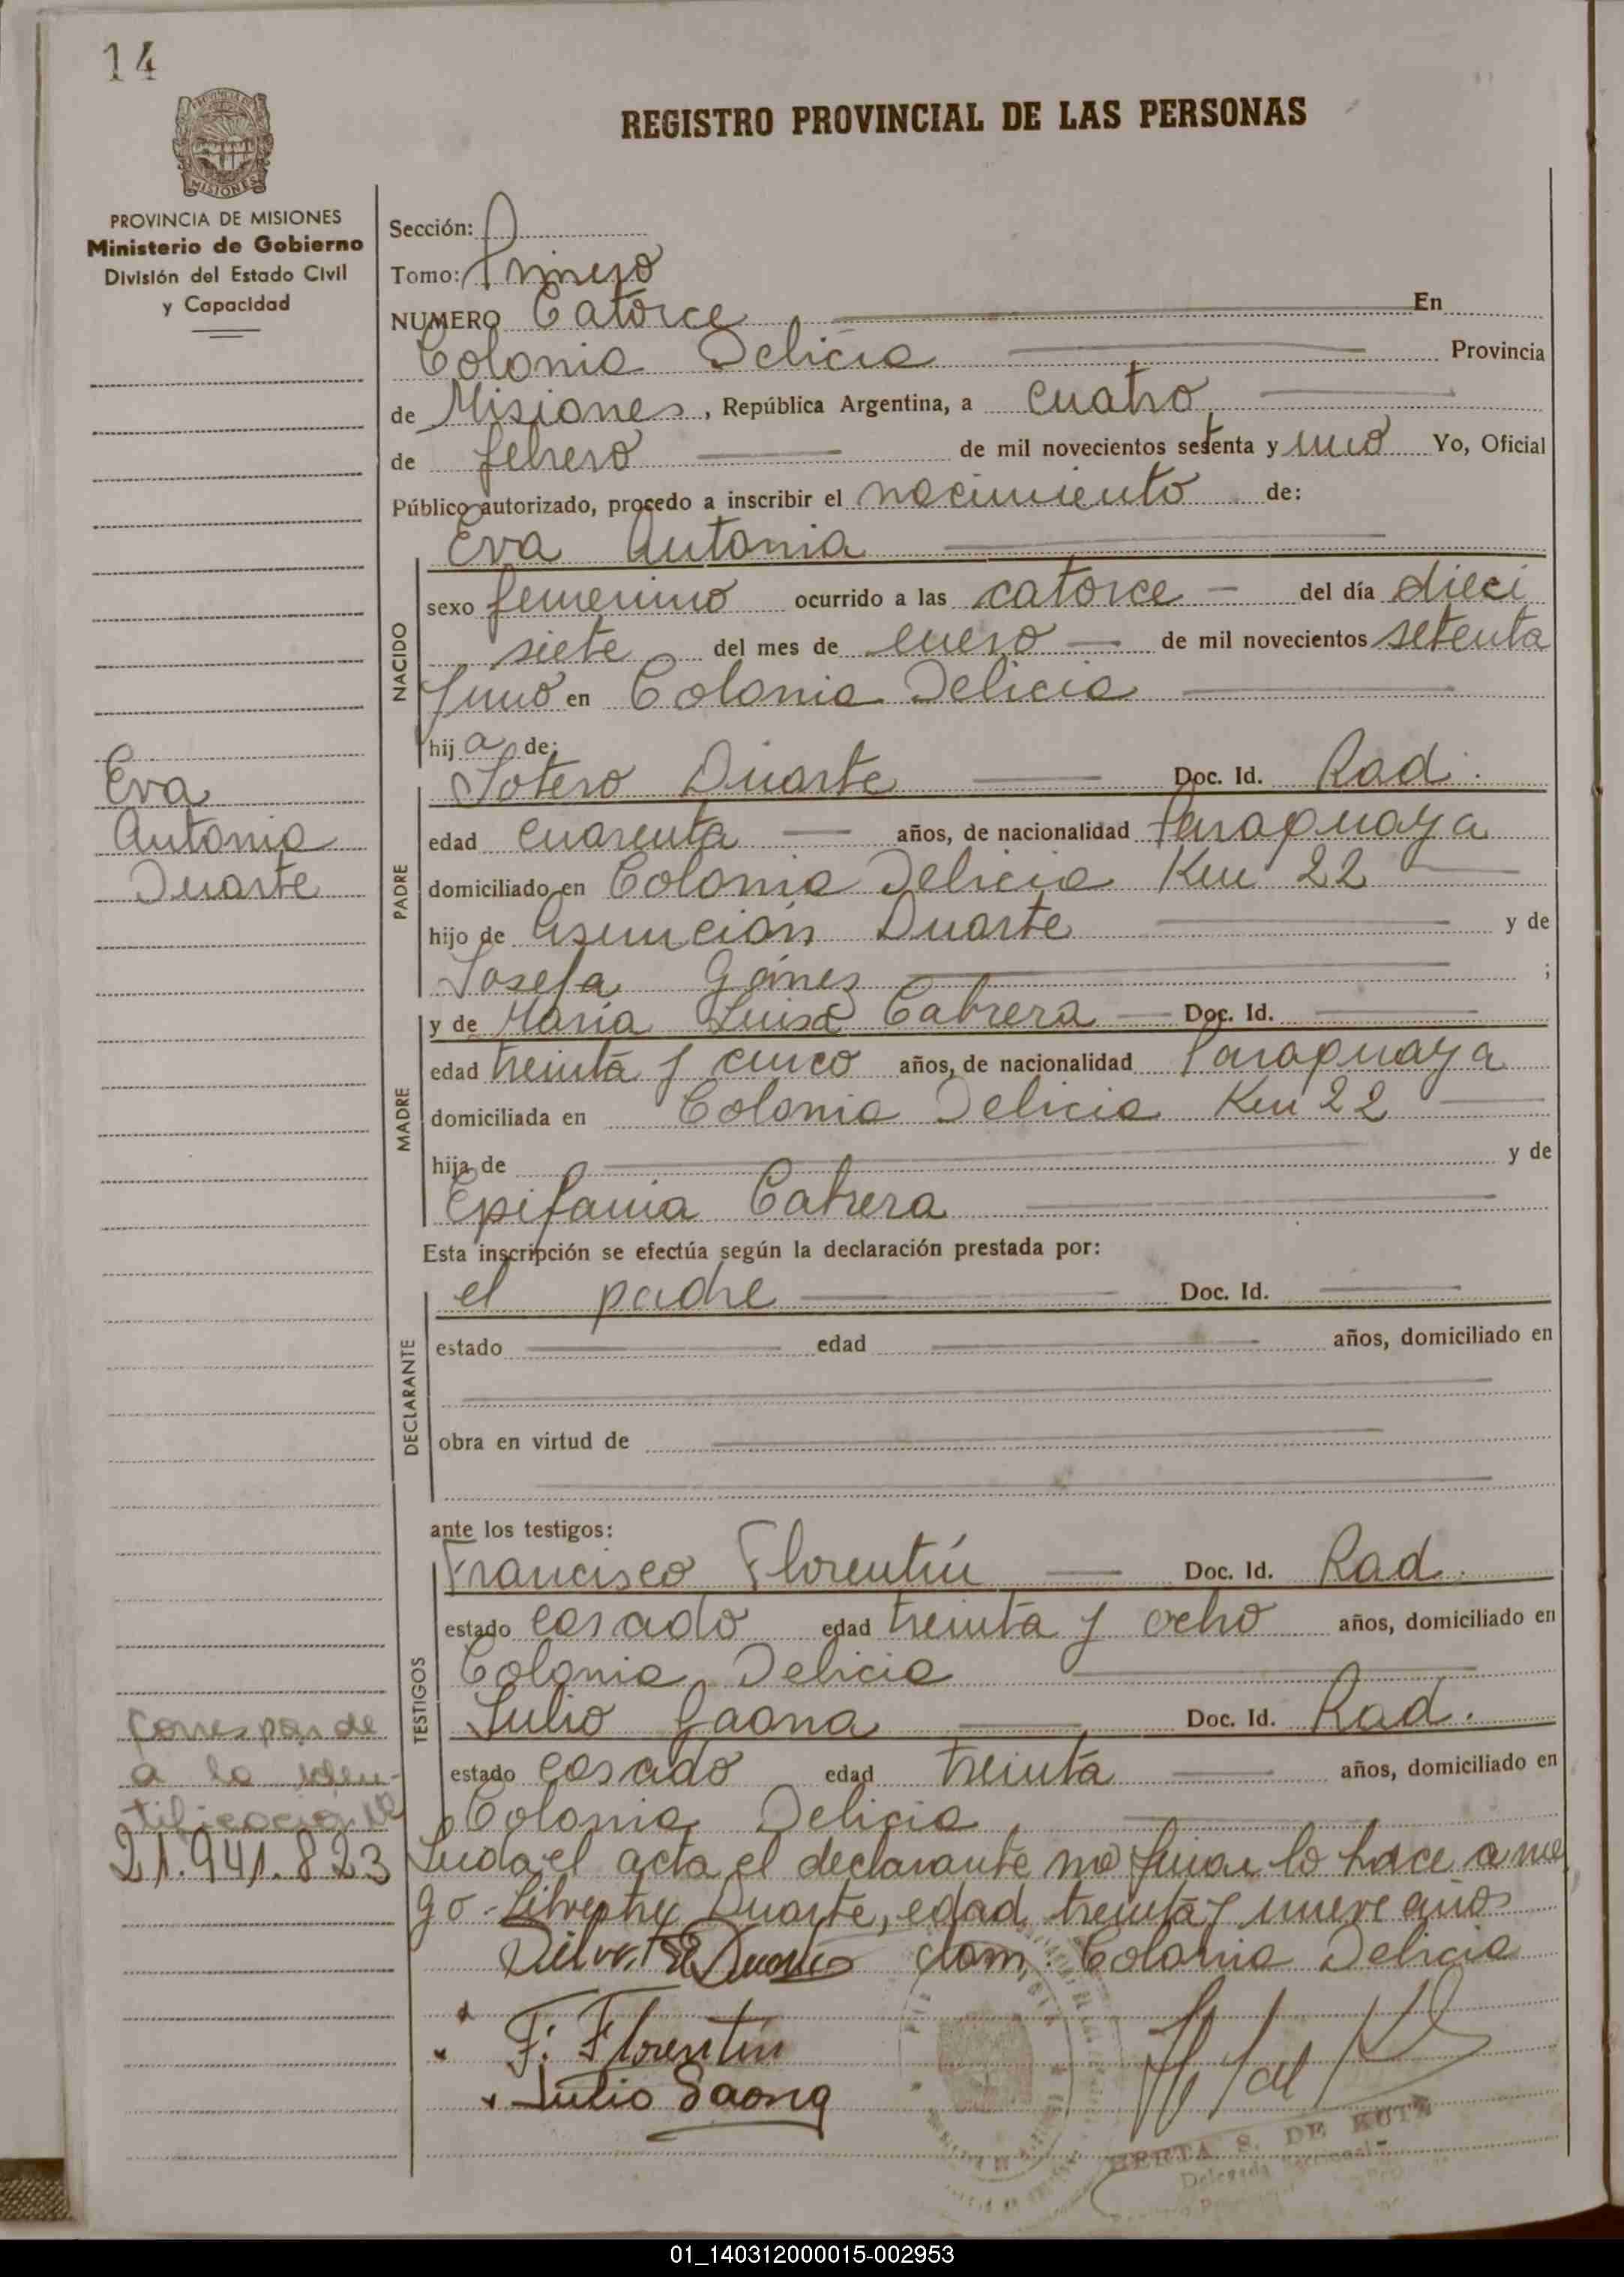 14
REGISTRO PROVINCIAL DE LAS PERSONAS
MISIONES
PROVINCIA DE MISIONES
Ministerio de Gobierno
División del Estado Civil
y Capacidad
Sección:
Tomo: Primero
NUMERO Catorce En
Colonia Delicia Provincia
de Misiones, República Argentina, a cuatro
de febrero de mil novecientos setenta y uno Yo, Oficial
Público autorizado, procedo a inscribir el nacimiento de:
Eva Antonia
NACIDO
sexo femenino ocurrido a las catorce del día dieci
siete del mes de enero de mil novecientos setenta
y uno en Colonia Delicia
hija de:
Sotero Duarte Doc. Id. Rad.
Eva
Antonia
Duarte
PADRE
edad cuarenta años, de nacionalidad Paraguaya
domiciliado en Colonia Delicia Km 22
hijo de Asunción Duarte y de
Josefa Gómez ;
MADRE
y de María Luisa Cabrera Doc. Id.
edad treinta y cinco años, de nacionalidad Paraguaya
domiciliada en Colonia Delicia Km 22
hija de y de
Epifania Cabrera
Esta inscripción se efectúa según la declaración prestada por:
DECLARANTE
el padre Doc. Id.
estado edad años, domiciliado en
obra en virtud de
ante los testigos:
TESTIGOS
Francisco Florentín Doc. Id. Rad.
estado casado edad treinta y ocho años, domiciliado en
Colonia Delicia
Julio Gaona Doc. Id. Rad.
estado casado edad treinta años, domiciliado en
Colonia Delicia
Corresponde
a la iden-
tificación Nº
21.941.823
Leida el acta el declarante no firma lo hace a rue
go Silvestre Duarte, edad treinta y nueve años
Duarte dom. Colonia Delicia
F. Florentín
Julio Gaona
HERTA S. DE KUTZ
Delegada
01_140312000015-002953